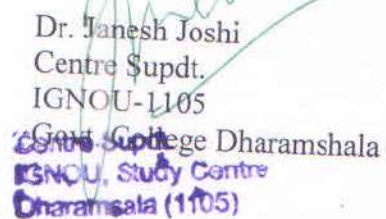 Dr. Janesh Joshi
Centre Supdt.
IGNOU-1105
Govt. College Dharamshala
Centre Supdt.
IGNOU, Study Centre
Dharamsala (1105)